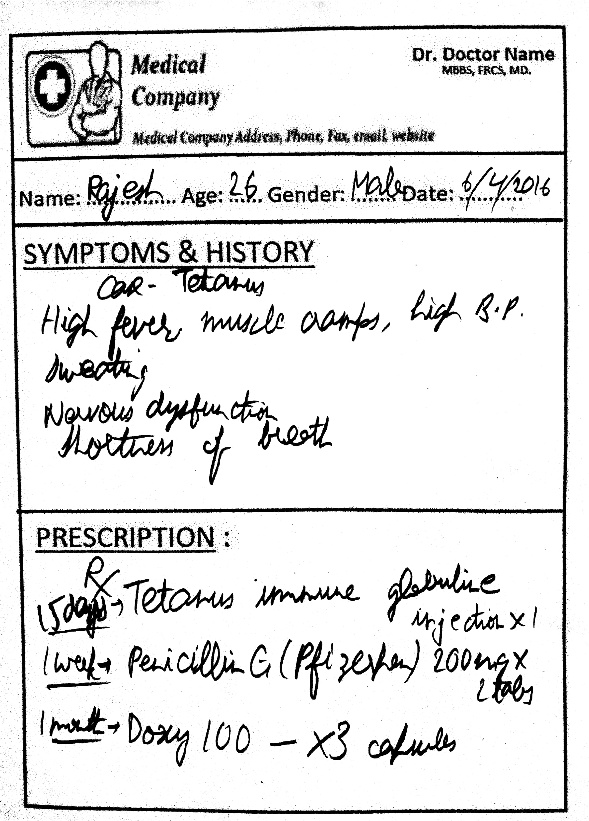 Medical
Company
Dr. Doctor Name
MBBS, FRCS, MD.
Medical Company Address, Phone, Fax, email, website
Name: Rajesh Age: 26 Gender: Male Date: 6/4/2016
SYMPTOMS & HISTORY
Case - Tetanus
High fever, muscle cramps, high B.P.
Sweating
Nervous dysfunction
Shortness of breath
PRESCRIPTION :
Rx
15 days → Tetanus immune globuline
injection x 1
1 week → Penicillin G (Pfizerpen) 200mg x
2 tabs
1 month → Doxy 100 - x3 capsules